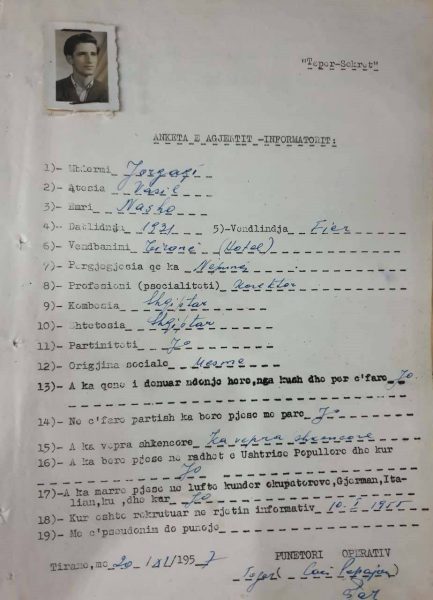 "Teper-Sekret"
ANKETA E AGJENTIT -INFORMATORIT:
1)- Mbiermi Jorgaqi
2)- Atesia Vasil
3)- Emri Nasho
4)- Datlidnja 1931 5)-Vendlindja Fier
6)- Vendbanimi Tiranë (Hotel)
7)- Pergjegjesia qe ka
8)- Profesioni (psocialiteti) Korektor
9)- Kombesia Shqiptar
10)- Shtetesia Shqiptar
11)- Partiniteti Jo
12)- Origjina sociale Mesme
13)- A ka qene i denuar ndonje here,nga kush dhe per c'fare Jo
14)- Ne c'fare partish ka bere pjese me pare Jo
15)- A ka vepra shkencore Ka vepra shkencore
16)- A ka bere pjese ne radhet e Ushtrise Popullore dhe kur
Jo
17)-A ka marre pjese ne lufte kunder okupatoreve,Gjerman,Ita-
lian,ku ,dhe kur Jo
18)- Kur eshte rekrutuar ne rjetin informativ 10-I-1955
19)- Me c'pseudonim do punoje
Tirane,me 20 /XI/1957 PUNETORI OPERATIV